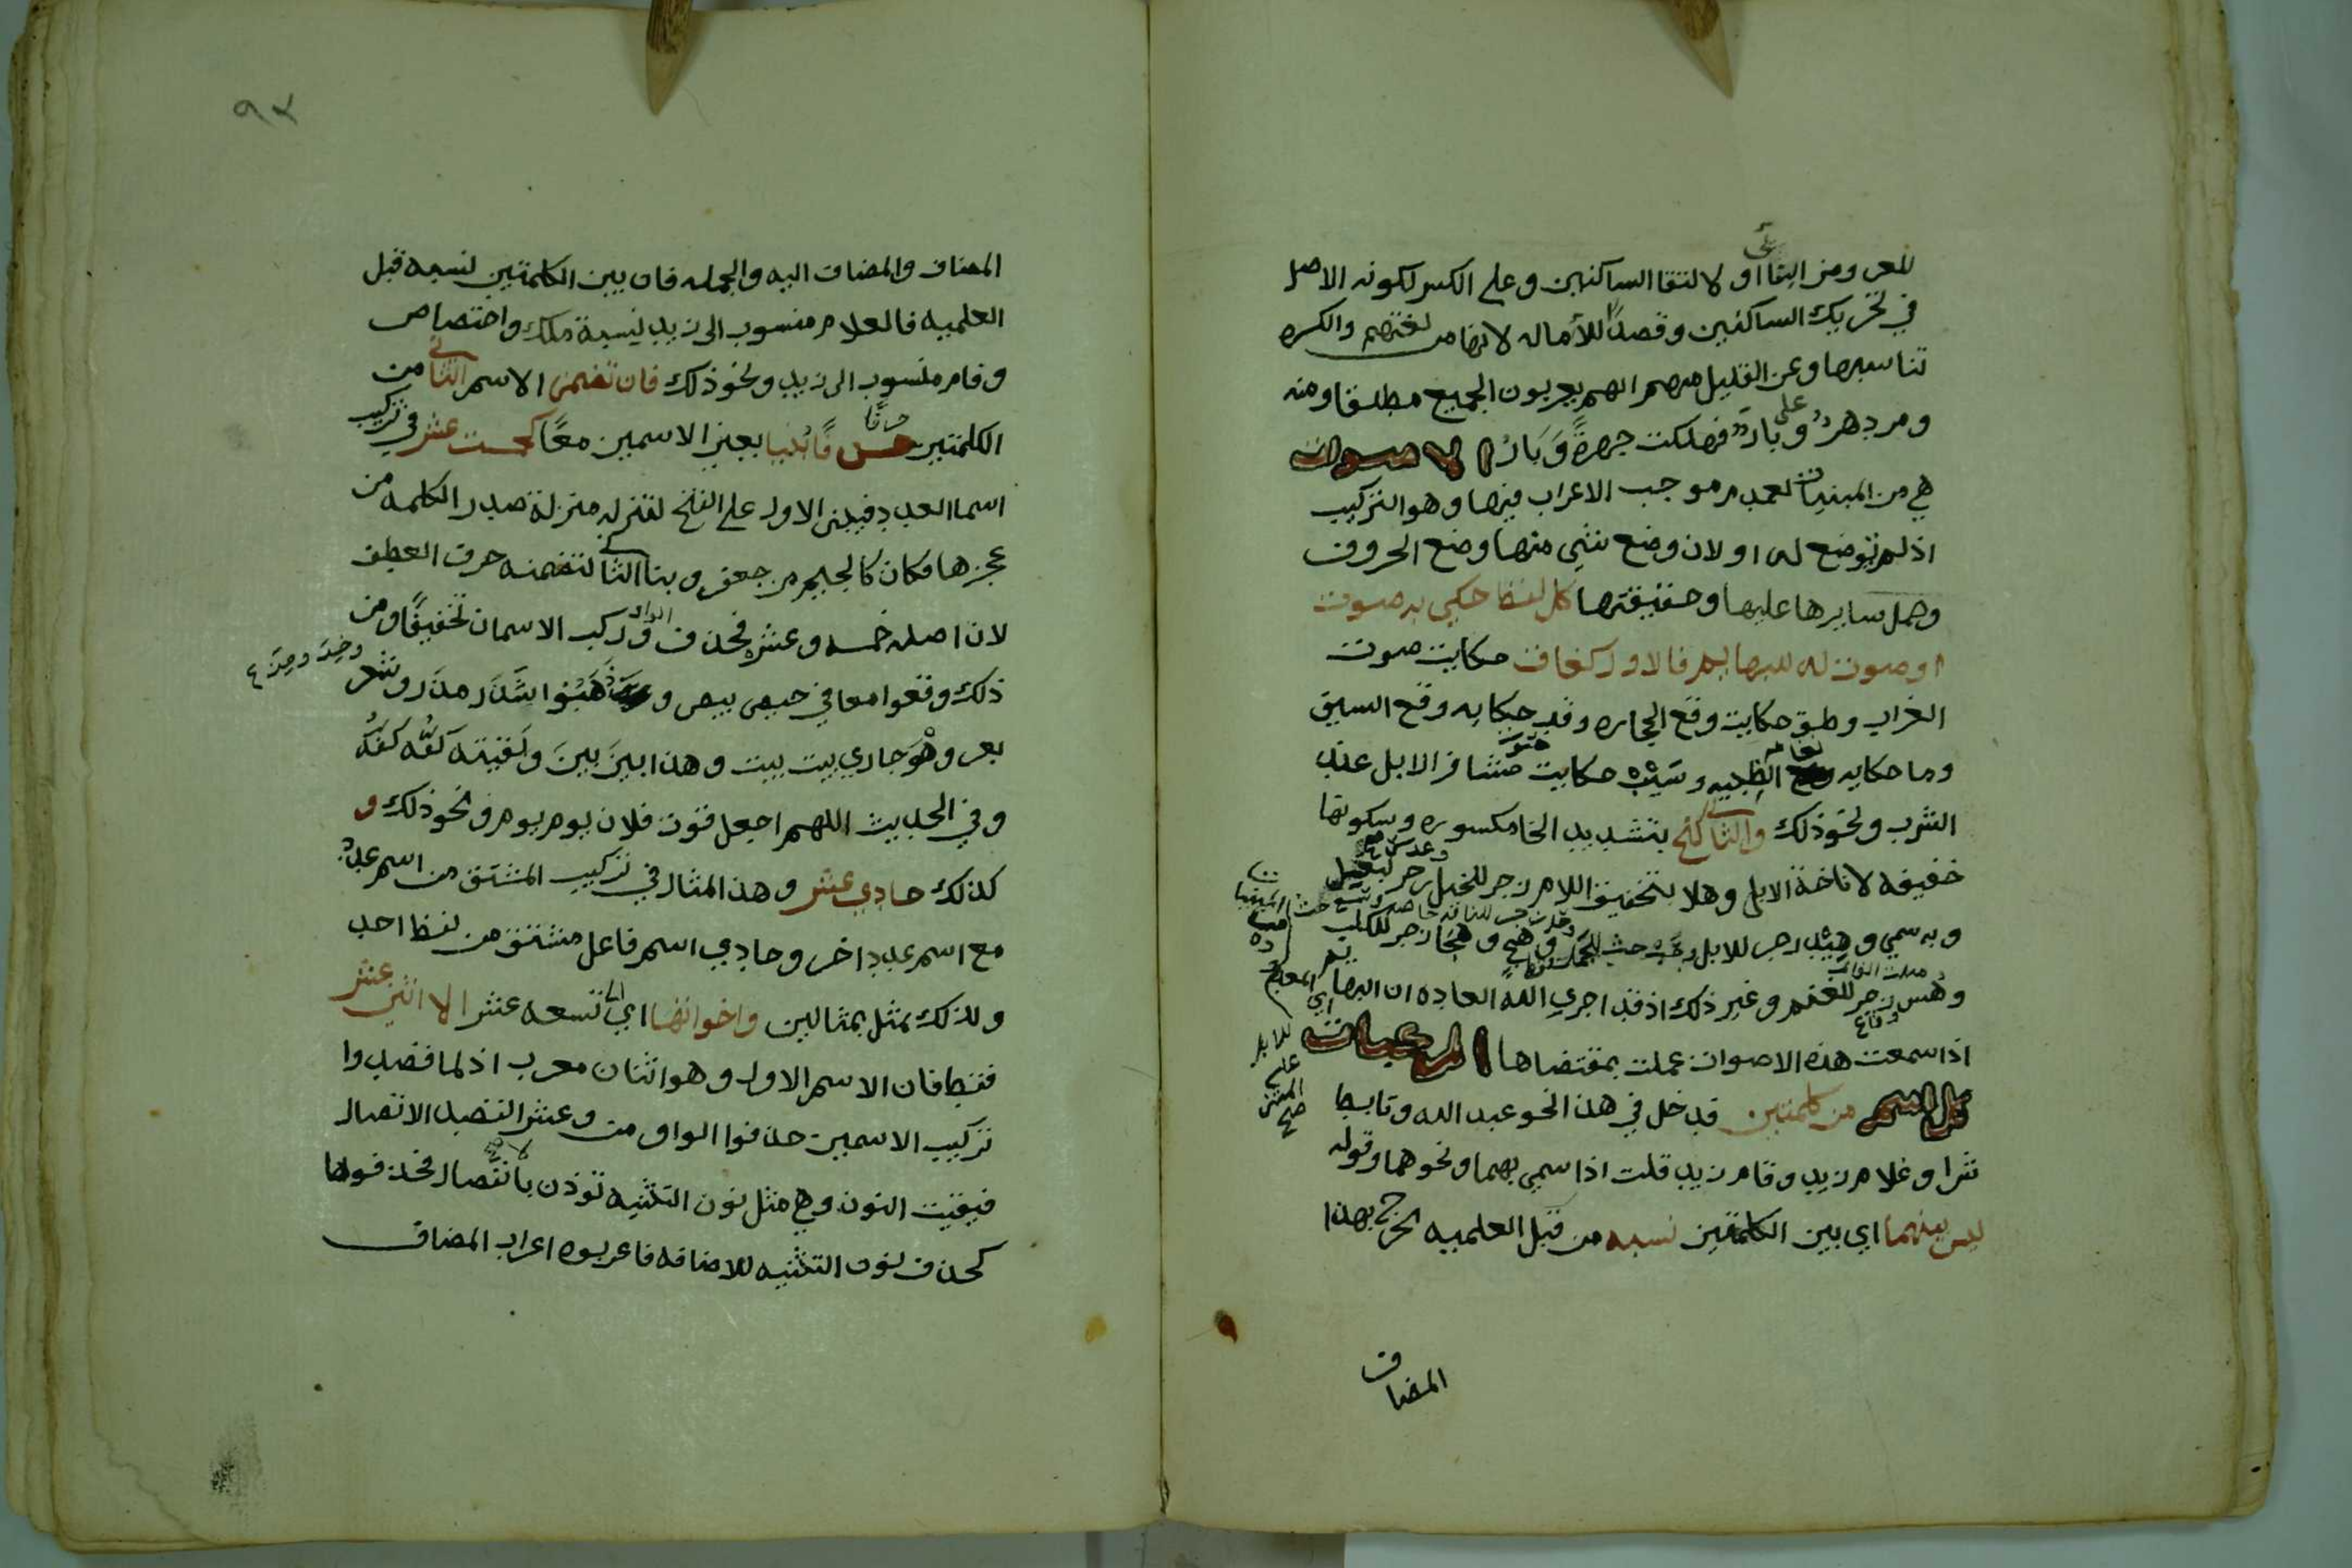 للعر ومن البنا او لالتقا الساكنين وعلى الكسر لكونه الاصل
في تحريك الساكنين وقصدًا للأماله لانها من لغتهم والكسره
تناسبها وعن القليل منهم انهم يعربون الجميع مطلقا ومنه
ومر دهر على وبار فهلكت جهرةً وَبَارُ الاصوات
هي من المبنيات لعدم موجب الاعراب فيها وهو التركيب
اذ لم توضع له او لان وضع شي منها وضع الحروف
وحمل سايرها عليها وحقيقتها كل لفظ حكي به صوت
او صوت به للبهايم فالاول كغاق حكايت صوت
الغراب وطق حكايت وقع الحجاره وقب حكايه وقع السيف
وما حكايه بغام الظبيه وشيب حكايت صوت مشافر الابل عند
الشرب ونحو ذلك والثاني كنخ بتشديد الخا مكسوره وسكونها
خفيفه لاناخة الابل وهلا بتخفيف اللام زجر للخيل وعدس زجر للبغل
وبه سمي وهيد زجر للابل وهج وهجا زجر للكلب
وهس زجر للغنم وغير ذلك اذ قد اجرى الله العاده ان البهايم
اذا سمعت هذه الاصوات عملت بمقتضاها المركبات
كل اسم من كلمتين قد خل في هذا نحو عبد الله وتابط
شرا وغلام زيد وقام زيد قلت اذا سمي بهما ونحوهما وقوله
ليس بينهما اي بين الكلمتين نسبه من قبل العلميه اخرج بهذا
المضاف
٩٢
المضاف والمضاف اليه والجمله فان بين الكلمتين نسبه قبل
العلميه فالغلام منسوب الى زيد نسبة ملك واختصاص
وقام منسوب الى زيد ونحو ذلك فان تضمن الاسم الثاني من
الكلمتين حرفًا بُنيا يعني الاسمين معًا كخمست عشر في تركيب
اسما العدد فيبنى الاول على الفتح لتنزله منزلة صدر الكلمه من
عجزها فكان كالجيم من جعفر وبنا الثاني لتضمنه حرف العطف
لان اصله خمسه وعشره فحذف الواو وركب الاسمان تخفيفًا ومن
ذلك وقعوا معا في حيص بيص وذهبوا شَذَرَ مَذَرَ وشغر
بغر وهْوَ جاري بيت بيت وهذا بينَ بينَ ولَقيته كَفَّه كَفَّه
وفي الحديث اللهم اجعل قوت فلان يوم يوم ونحو ذلك و
كذلك حادي عشر وهذا المثال في تركيب المشتق من اسم عدد
مع اسم عدد اخر وحادي اسم فاعل مشتق من لفظ احد
ولذلك مثل بمثالين واخواتها اي الى تسعه عشر الا اثني عشر
فقط فان الاسم الاول وهو اثنان معرب اذ لما قصدوا
تركيب الاسمين حذفوا الواو من وعشر لقصد الاتصال
فبقيت النون وهي مثل نون التثنيه تؤذن بانفصال فحذفوها
كحذف نون التثنيه للاضافه فاعربوه اعراب المضاف